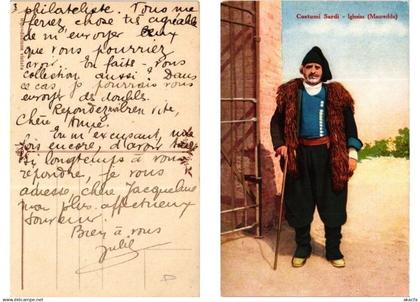 philatéliste. Tous me
ferez chose très agréable
de m'envoyer ceux
que vous pourriez
avoir. En faites-vous
collection aussi? Dans
ce cas je pourrais vous
envoyer des doubles.
Répondez bien vite,
Chère Amie.
En m'excusant, une
fois encore, d'avoir
si longtemps à vous
répondre, je vous
adresse, chère Jacqueline
mon plus affectueux
souvenir.
Bien à vous
Julie
Costumi Sardi - Iglesias (Maureddu)
www.akpool.com